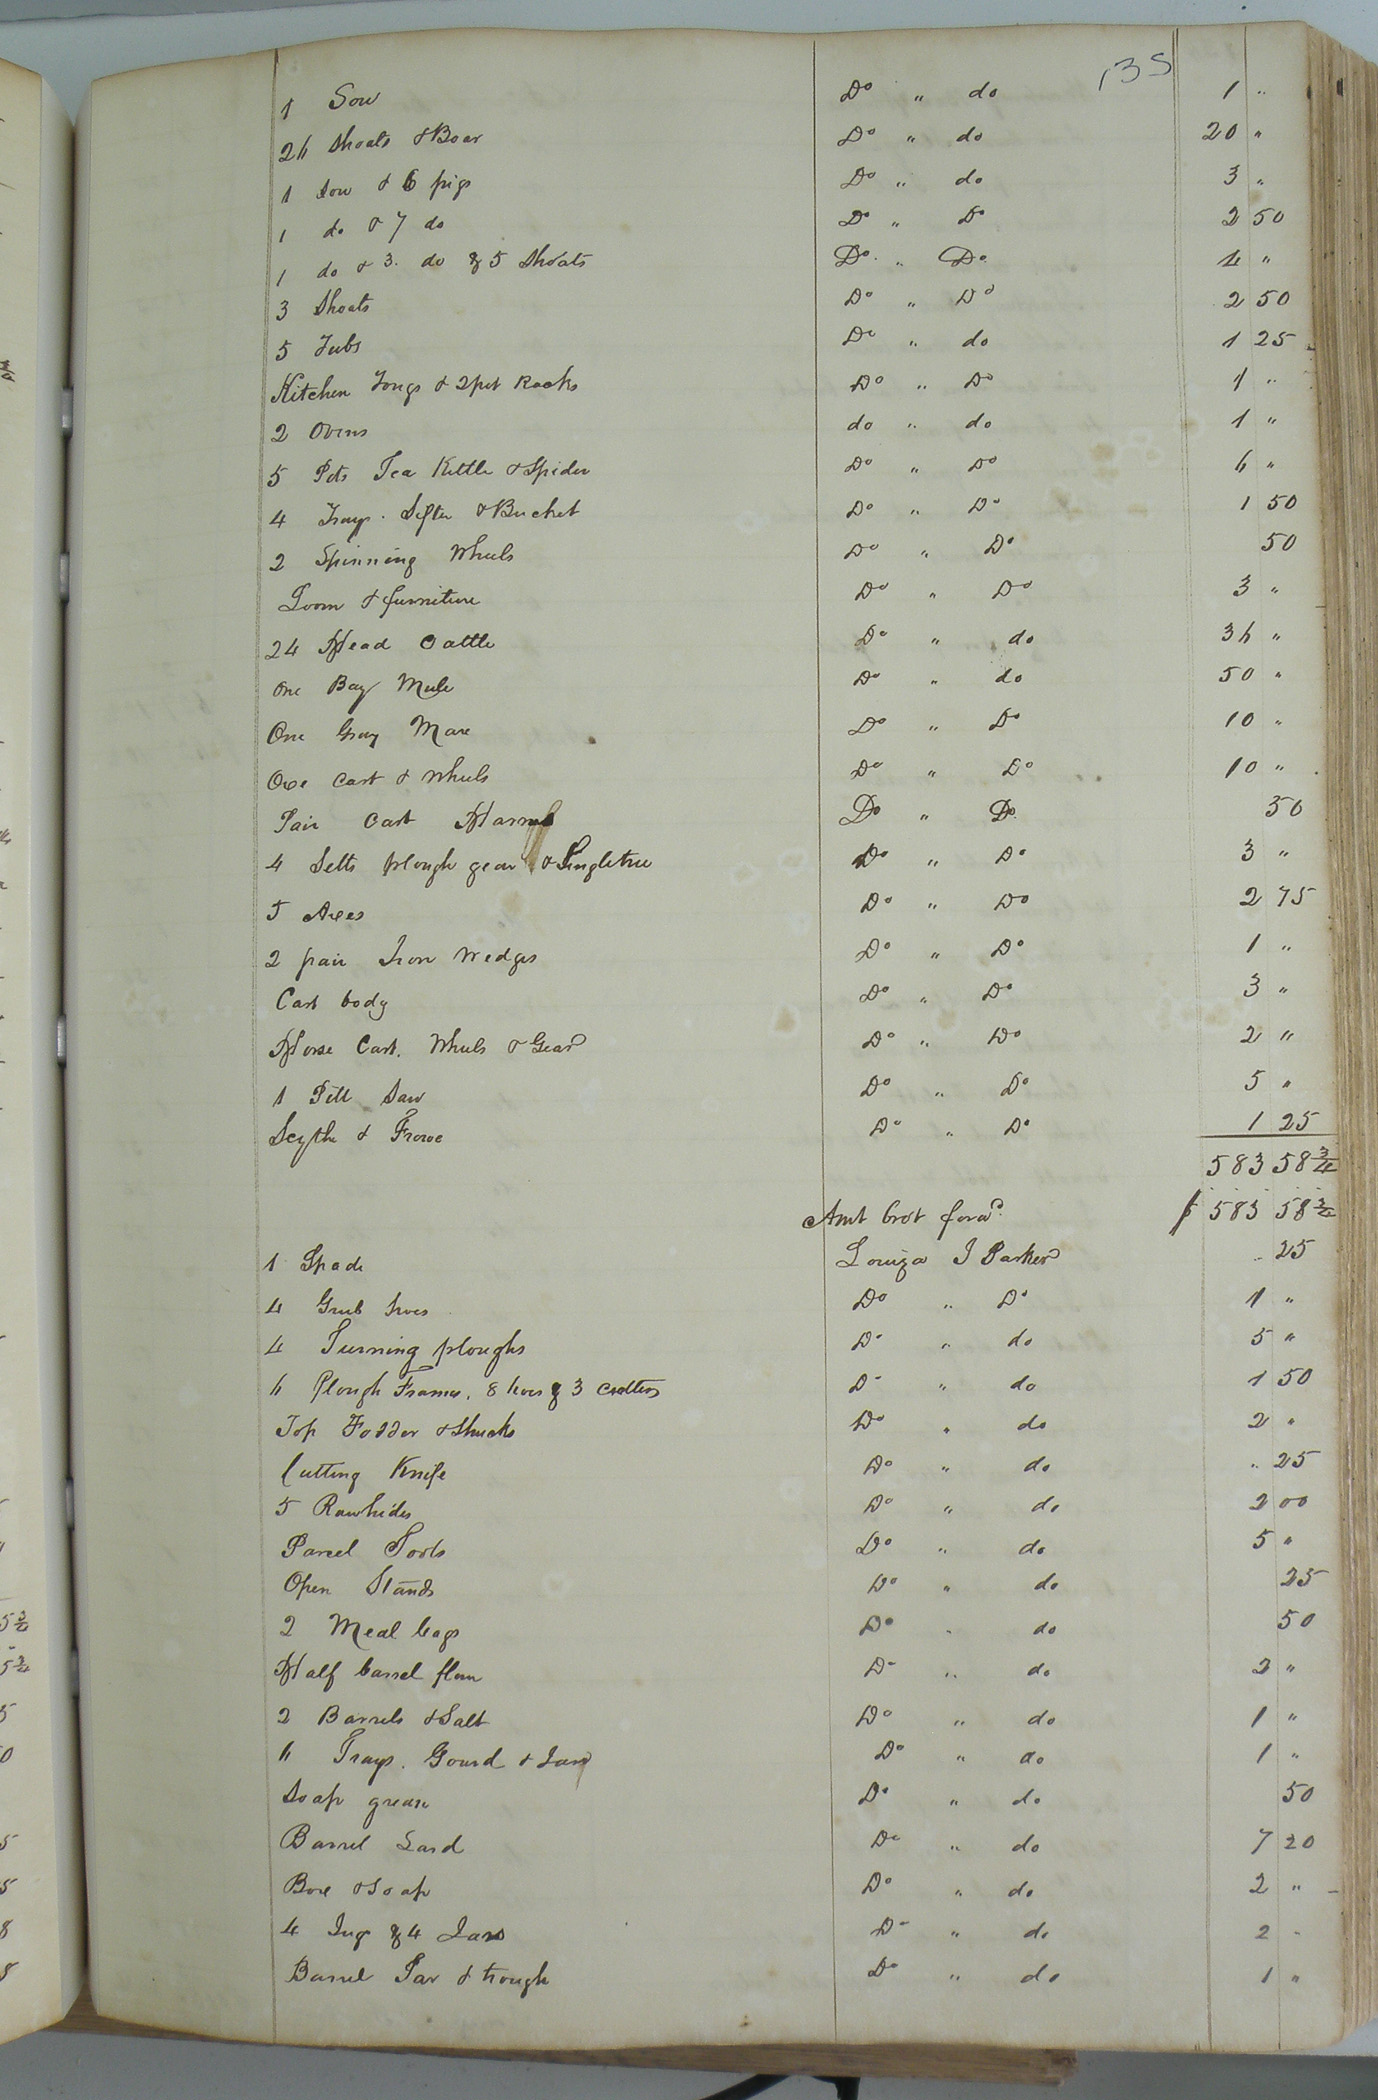 135
1 Sow Do " do 1 "
26 Shoats & Boar Do " do 20 "
1 Sow & 6 pigs Do " do 3 "
1 do & 7 do Do " Do 2 50
1 do & 3 do & 5 Shoats Do " Do 4 "
3 Shoats Do " Do 2 50
5 Tubs Do " do 1 25
Kitchen Tongs & 2 pot Racks Do " Do 1 "
2 Ovens do " do 1 "
5 Pots Tea Kettle & Spider Do " Do 6 "
4 Trays. Sifter & Bucket Do " Do 1 50
2 Spinning Wheels Do " Do 50
Loom & furniture Do " Do 3 "
24 Head Cattle Do " do 36 "
One Bay Mule Do " do 50 "
One Gray Mare Do " Do 10 "
Oxe Cart & Wheels Do " Do 10 "
Pair Cart Harness Do " Do 50
4 Setts plough gear & Singletree Do " Do 3 "
5 Axes Do " Do 2 75
2 pair Iron Wedges Do " Do 1 "
Cart body Do " Do 3 "
Horse Cart. Wheels & Gear Do " Do 2 "
1 Pitt Saw Do " Do 5 "
Scythe & Frowe Do " Do 1 25
583 58 3/4
Amt brot forwd. $ 583 58 3/4
1 Spade Louiza J Parker " 25
4 Grub hoes Do " Do 1 "
4 Turning ploughs Do " do 5 "
6 Plough Frames. 8 hoes & 3 Do " do 1 50
Top Fodder & Shucks Do " do 2 "
Cutting Knife Do " do " 25
5 Rawhides Do " do 2 00
Parcel Tools Do " do 5 "
Open Stands Do " do 25
2 Meal bags Do " do 50
Half barrel flour Do " do 2 "
2 Barrels & Salt Do " do 1 "
6 Trays. Gourd & Do " do 1 "
Soap grease Do " do 50
Barrel Lard Do " do 7 20
Boxe & Soap Do " do 2 "
4 Jugs & 4 Jars Do " do 2 "
Barrel Tar & trough Do " do 1 "